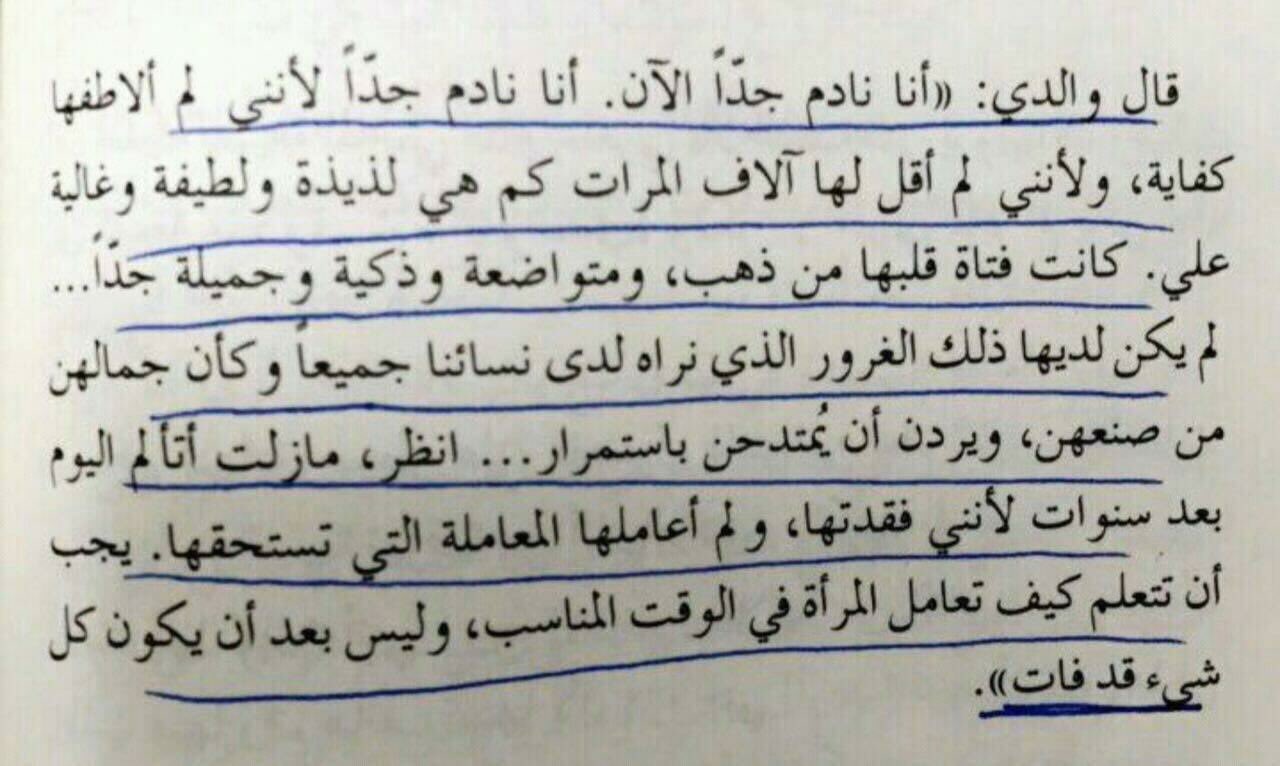 قال والدي: «أنا نادم جدّاً الآن. أنا نادم جدّاً لأنني لم ألاطفها
كفاية، ولأنني لم أقل لها آلاف المرات كم هي لذيذة ولطيفة وغالية
علي. كانت فتاة قلبها من ذهب، ومتواضعة وذكية وجميلة جدّاً...
لم يكن لديها ذلك الغرور الذي نراه لدى نسائنا جميعاً وكأن جمالهن
من صنعهن، ويردن أن يُمتدحن باستمرار... انظر، مازلت أتألم اليوم
بعد سنوات لأنني فقدتها، ولم أعاملها المعاملة التي تستحقها. يجب
أن تتعلم كيف تعامل المرأة في الوقت المناسب، وليس بعد أن يكون كل
شيء قد فات».